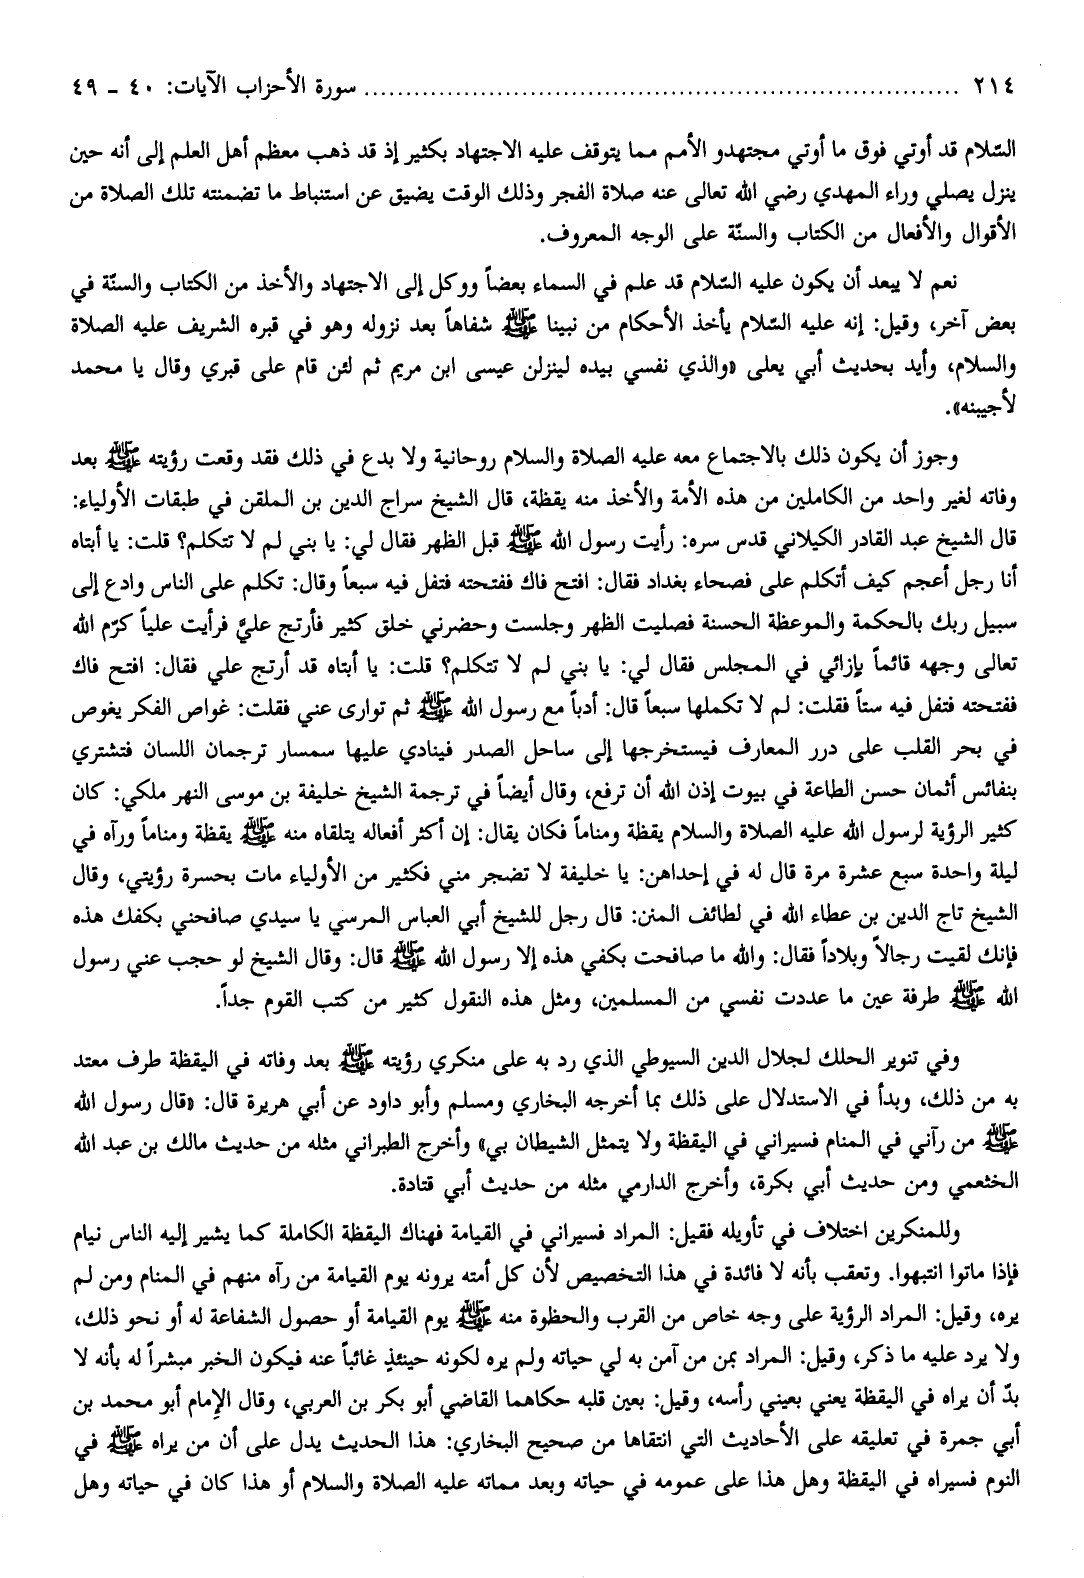 ٢١٤ ........................................................ سورة الأحزاب الآيات: ٤٠ - ٤٩
السّلام قد أوتي فوق ما أوتي مجتهدو الأمم مما يتوقف عليه الاجتهاد بكثير إذ قد ذهب معظم أهل العلم إلى أنه حين
ينزل يصلي وراء المهدي رضي الله تعالى عنه صلاة الفجر وذلك الوقت يضيق عن استنباط ما تضمنته تلك الصلاة من
الأقوال والأفعال من الكتاب والسنّة على الوجه المعروف.
نعم لا يبعد أن يكون عليه السّلام قد علم في السماء بعضاً ووكل إلى الاجتهاد والأخذ من الكتاب والسنّة في
بعض آخر، وقيل: إنه عليه السّلام يأخذ الأحكام من نبينا ﷺ شفاهاً بعد نزوله وهو في قبره الشريف عليه الصلاة
والسلام، وأيد بحديث أبي يعلى «والذي نفسي بيده لينزلن عيسى ابن مريم ثم لئن قام على قبري وقال يا محمد
لأجيبنه».
وجوز أن يكون ذلك بالاجتماع معه عليه الصلاة والسلام روحانية ولا بدع في ذلك فقد وقعت رؤيته ﷺ بعد
وفاته لغير واحد من الكاملين من هذه الأمة والأخذ منه يقظة، قال الشيخ سراج الدين بن الملقن في طبقات الأولياء:
قال الشيخ عبد القادر الكيلاني قدس سره: رأيت رسول الله ﷺ قبل الظهر فقال لي: يا بني لم لا تتكلم؟ قلت: يا أبتاه
أنا رجل أعجم كيف أتكلم على فصحاء بغداد فقال: افتح فاك ففتحته فتفل فيه سبعاً وقال: تكلم على الناس وادع إلى
سبيل ربك بالحكمة والموعظة الحسنة فصليت الظهر وجلست وحضرني خلق كثير فأرتج عليَّ فرأيت علياً كرّم الله
تعالى وجهه قائماً بإزائي في المجلس فقال لي: يا بني لم لا تتكلم؟ قلت: يا أبتاه قد أرتج علي فقال: افتح فاك
ففتحته فتفل فيه ستاً فقلت: لم لا تكملها سبعاً قال: أدباً مع رسول الله ﷺ ثم توارى عني فقلت: غواص الفكر يغوص
في بحر القلب على درر المعارف فيستخرجها إلى ساحل الصدر فينادي عليها سمسار ترجمان اللسان فتشترى
بنفائس أثمان حسن الطاعة في بيوت إذن الله أن ترفع، وقال أيضاً في ترجمة الشيخ خليفة بن موسى النهر ملكي: كان
كثير الرؤية لرسول الله عليه الصلاة والسلام يقظة ومناماً فكان يقال: إن أكثر أفعاله يتلقاه منه ﷺ يقظة ومناماً ورآه في
ليلة واحدة سبع عشرة مرة قال له في إحداهن: يا خليفة لا تضجر مني فكثير من الأولياء مات بحسرة رؤيتي، وقال
الشيخ تاج الدين بن عطاء الله في لطائف المنن: قال رجل للشيخ أبي العباس المرسي يا سيدي صافحني بكفك هذه
فإنك لقيت رجالاً وبلاداً فقال: والله ما صافحت بكفي هذه إلا رسول الله ﷺ قال: وقال الشيخ لو حجب عني رسول
الله ﷺ طرفة عين ما عددت نفسي من المسلمين، ومثل هذه النقول كثير من كتب القوم جداً.
وفي تنوير الحلك لجلال الدين السيوطي الذي رد به على منكري رؤيته ﷺ بعد وفاته في اليقظة طرف معتد
به من ذلك، وبدأ في الاستدلال على ذلك بما أخرجه البخاري ومسلم وأبو داود عن أبي هريرة قال: «قال رسول الله
ﷺ من رآني في المنام فسيراني في اليقظة ولا يتمثل الشيطان بي» وأخرج الطبراني مثله من حديث مالك بن عبد الله
الخثعمي ومن حديث أبي بكرة، وأخرج الدارمي مثله من حديث أبي قتادة.
وللمنكرين اختلاف في تأويله فقيل: المراد فسيراني في القيامة فهناك اليقظة الكاملة كما يشير إليه الناس نيام
فإذا ماتوا انتبهوا. وتعقب بأنه لا فائدة في هذا التخصيص لأن كل أمته يرونه يوم القيامة من رآه منهم في المنام ومن لم
يره، وقيل: المراد الرؤية على وجه خاص من القرب والحظوة منه ﷺ يوم القيامة أو حصول الشفاعة له أو نحو ذلك،
ولا يرد عليه ما ذكر، وقيل: المراد بمن من آمن به لي حياته ولم يره لكونه حينئذٍ غائباً عنه فيكون الخبر مبشراً له بأنه لا
بدّ أن يراه في اليقظة يعني بعيني رأسه، وقيل: بعين قلبه حكاهما القاضي أبو بكر بن العربي، وقال الإمام أبو محمد بن
أبي جمرة في تعليقه على الأحاديث التي انتقاها من صحيح البخاري: هذا الحديث يدل على أن من يراه ﷺ في
النوم فسيراه في اليقظة وهل هذا على عمومه في حياته وبعد مماته عليه الصلاة والسلام أو هذا كان في حياته وهل